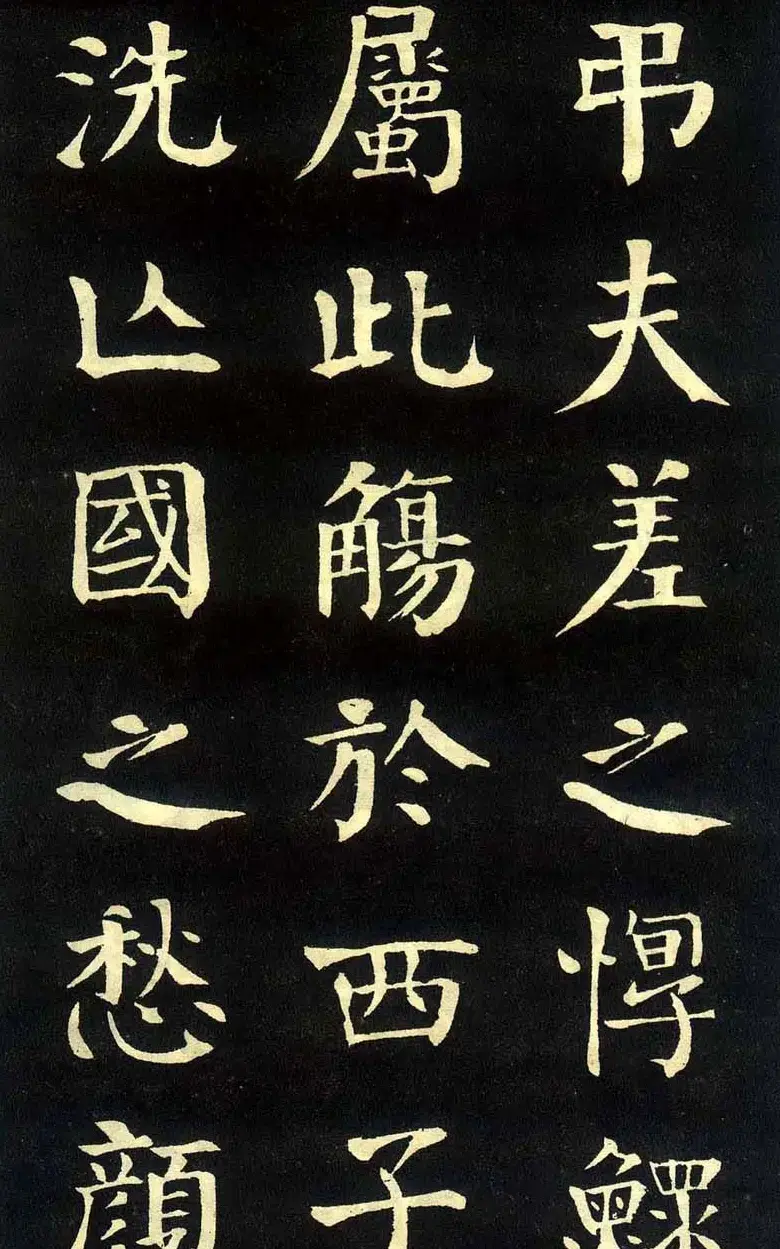 弔夫差之惸鰥
屬此觴於西子
洗亾國之愁顏